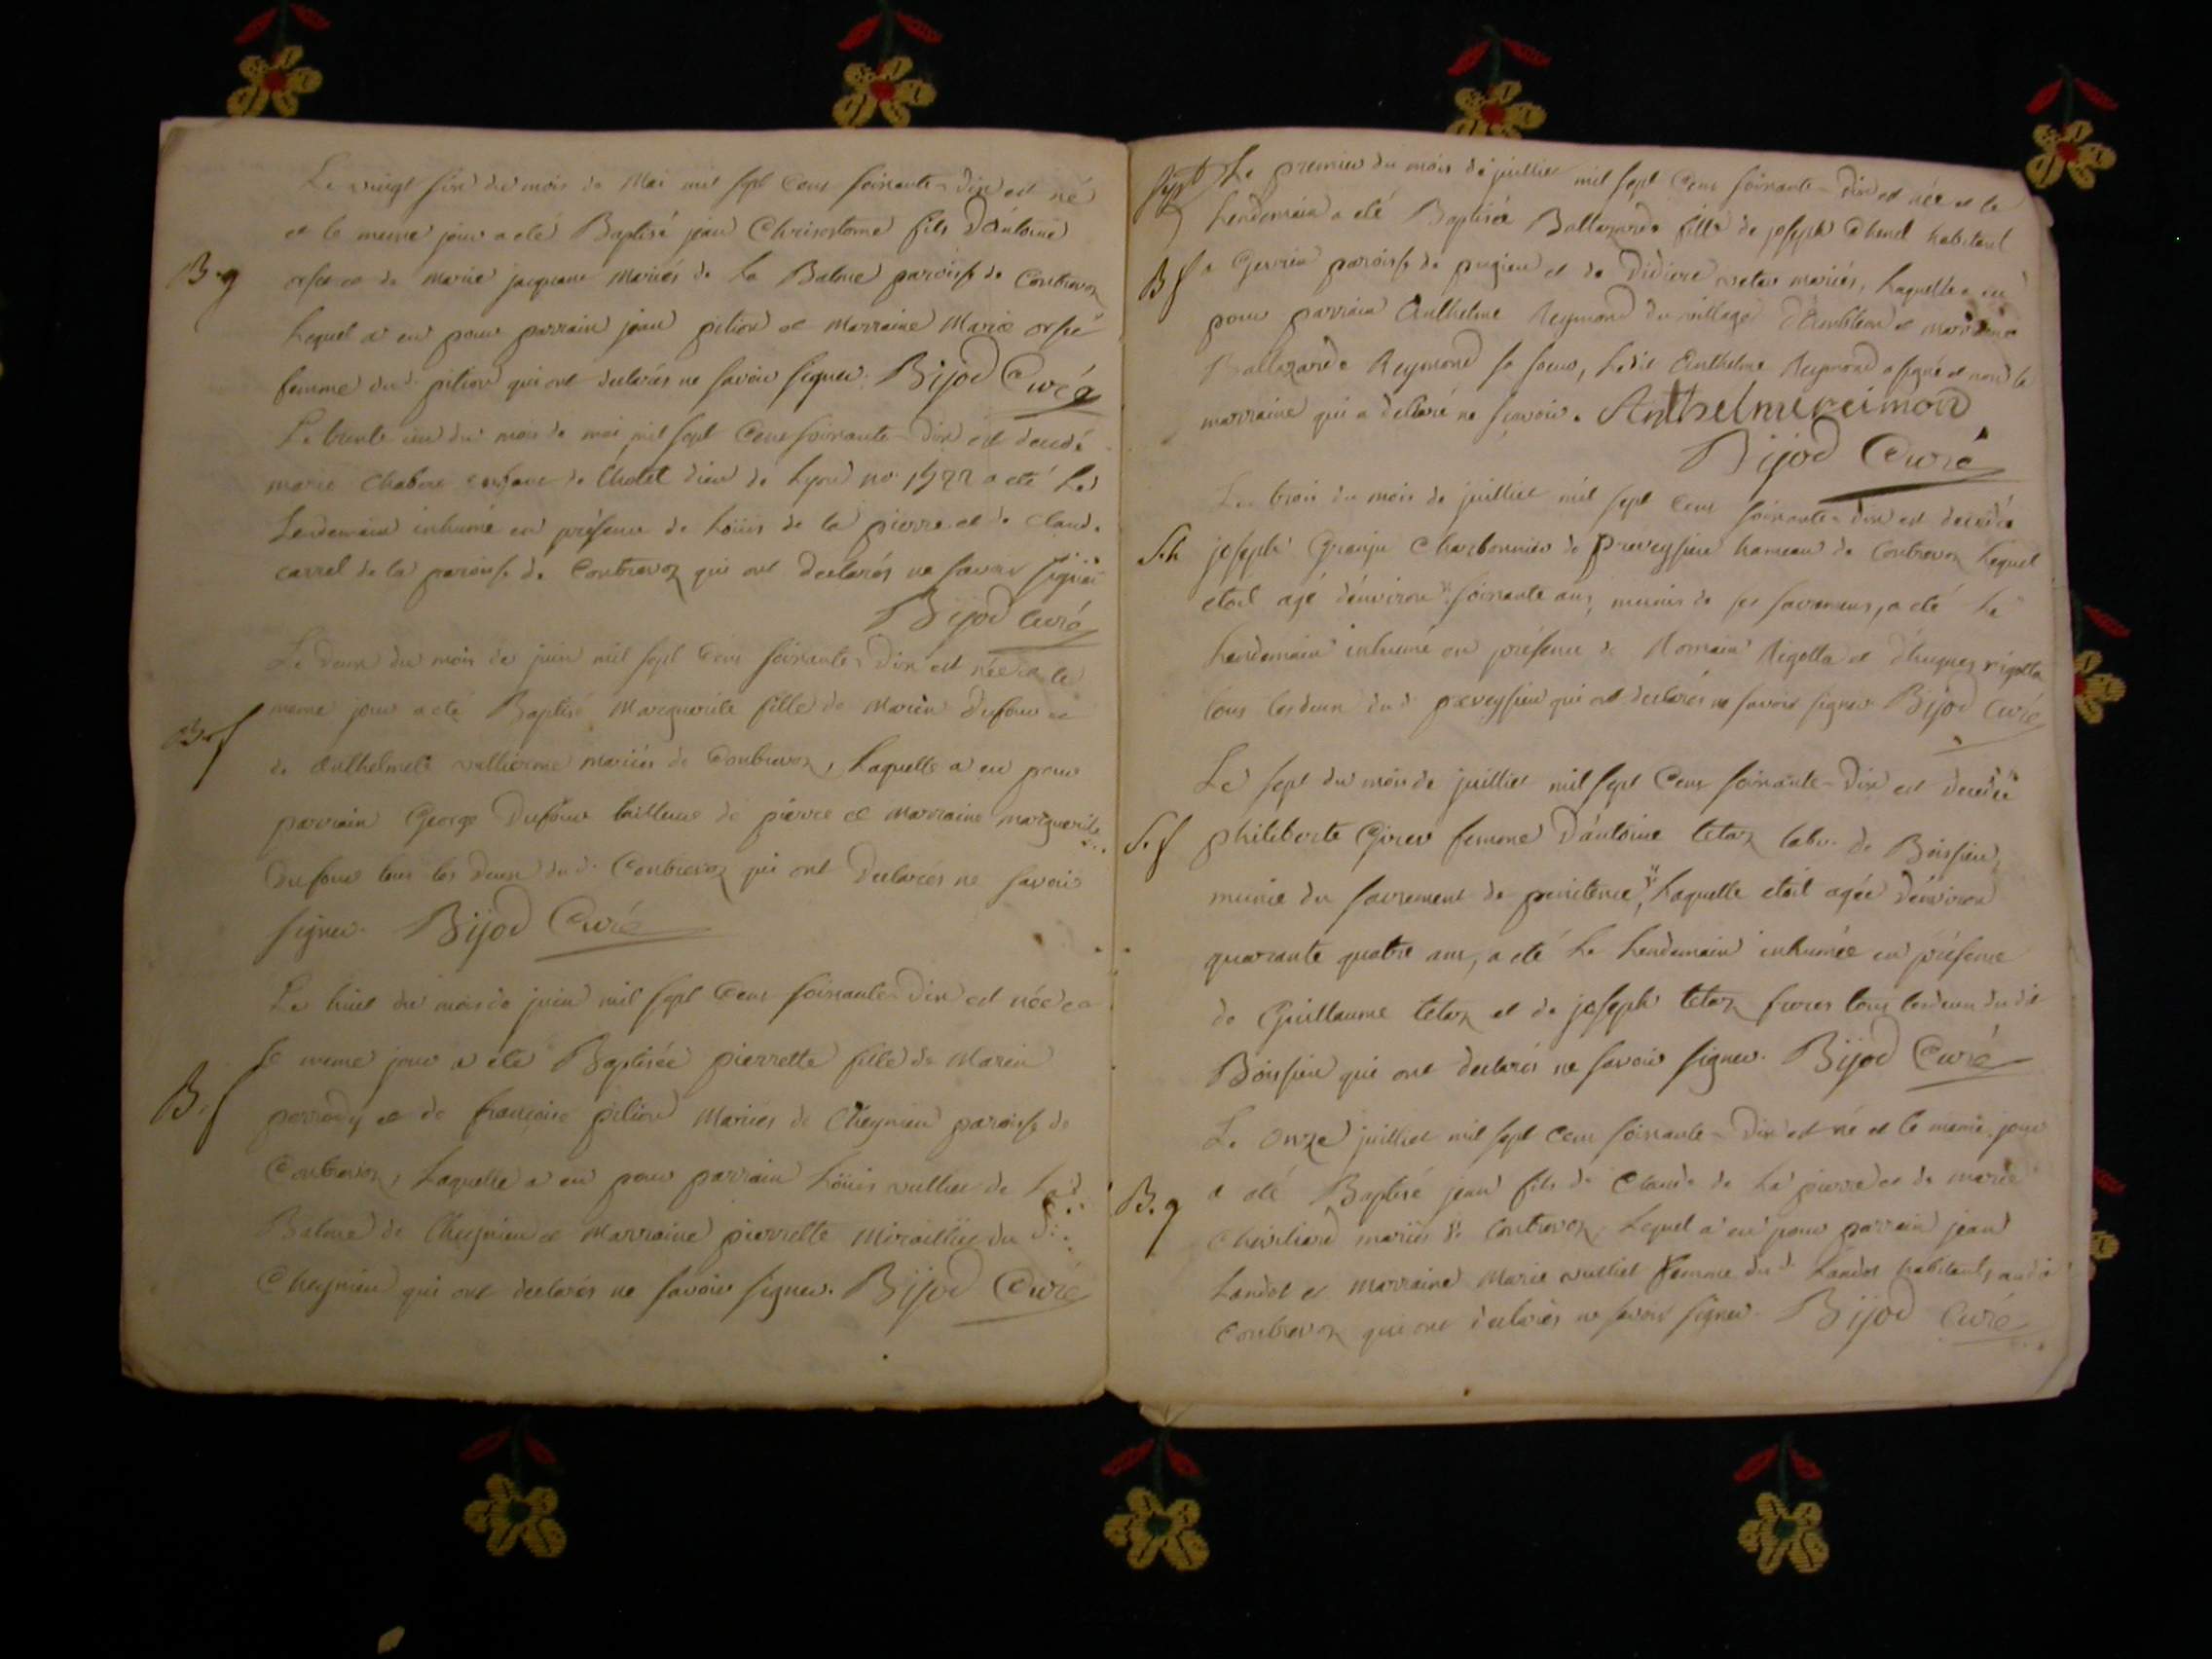 Le vingt six du mois de Mai mil sept Cent soixante-dix est né
et le meme jour a eté Baptisé jean Chrisostome fils D'antoine
B. g orset et de Marie jacquane Mariés de La Balme paroisse de Contrevoz
Lequel a eu pour parrain jean pition et Marraine Marie orset
femme dud. pition qui ont declarés ne savoir signer. Bijod Curé
Le trente un du mois de mai mil sept Cent soixante-dix est decedé
marie enfant de l'hotel dieu de Lyon no. a eté Le
Lendemain inhumé en présence de Loüis de la pierre et de Claude
carrel de la paroisse de Contrevoz qui ont declarés ne savoir signer
Bijod Curé
Le deux du mois de juin mil sept Cent soixante-Dix est née et le
meme jour a eté Baptisé Marguerite fille de Marin Dufour et
B. f de Anthelmete vullierme mariés de Contrevoz, Laquelle a eu pour
parrain George Dufour tailleur de pierre et Marraine marguerite
Dufour tous les deux dud. Contrevoz qui ont Declarés ne savoir
signer. Bijod Curé
Le huit du mois de juin mil sept Cent soixante-Dix est née et
le meme jour a eté Baptisée pierrette fille de Marin
B. f et de françoise pition Mariés de Cheynieu paroisse de
Contrevoz, Laquelle a eu pour parrain Loüis vulliet de La d.
Balme de Cheynieu et Marraine pierrette du d.
Cheynieu qui ont declarés ne savoir signer. Bijod Curé
Le premier du mois de juillet mil sept Cent soixante-Dix est née et le
Lendemain a eté Baptisée Baltazarde fille de joseph habitant
B f a Gevrin paroisse de pugieu et de Didiere mariés, Laquelle a eu
pour parrain Anthelme Reymond du village d'Ambleon et marraine
Baltazarde Reymond sa soeur, Ledit Anthelme Reymond a signé et non la
marraine qui a declaré ne scavoir. Anthelme reimond
Bijod Curé
Le trois du mois de juillet mil sept Cent soixante-Dix est decedé
S. h joseph Granju Charbonnier de preveyssieu hameau de Contrevoz Lequel
etoit agé d'environ soixante ans, munis de ses sacremens, a eté Le
Lendemain inhumé en présence de Romain Rigolla et d'hugues rigolla
tous les deux dud. preveyssieu qui ont declarés ne savoir signer. Bijod Curé
Le sept du mois de juillet mil sept Cent soixante-Dix est decedée
S. f philiberte Girer femme d'antoine tetaz labr. de Boissieu,
munie du sacrement de penitence, Laquelle etoit agée d'environ
quarante quatre ans, a eté Le Lendemain inhumée en présence
de Guillaume tetaz et de joseph tetaz freres tous les deux dudit
Boissieu qui ont declarés ne savoir signer. Bijod Curé
Le onze juillet mil sept Cent soixante-Dix est né et le meme jour
B. g a eté Baptisé jean fils de Claude de La pierre et de marie
mariés de Contrevoz, Lequel a eu pour parrain jean
Landot et Marraine Marie vulliet femme dud. Landot habitants aud.
Contrevoz qui ont declarés ne savoir signer. Bijod Curé